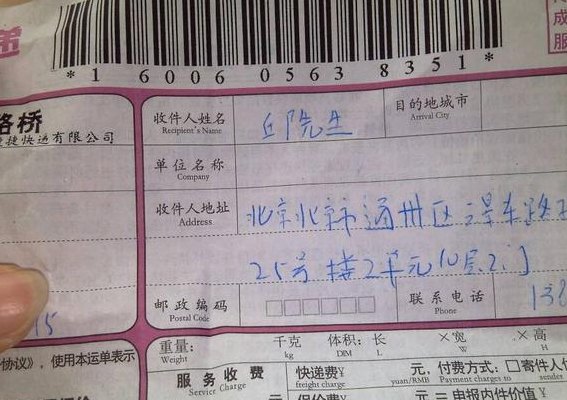 *1 6006 0563 8351*
路桥
捷快运有限公司
收件人姓名
Recipient's Name
先生
目的地城市
Arrival City
单位名称
Company
收件人地址
Address
北京北京市通州区
25号楼2单元
邮政编码
Postal Code
联系电话
Phone
138
15
重量:
Weight
千克
kg
体积:
DIM
长
L
×宽
W
×高
H
协议》，使用本运单表示
服务收费
Service Charge
快递费¥
freight charge
元，
yuan/RMB
付费方式：□寄件人
Payment charges to
sender
保价费¥
元＝申报内件价值